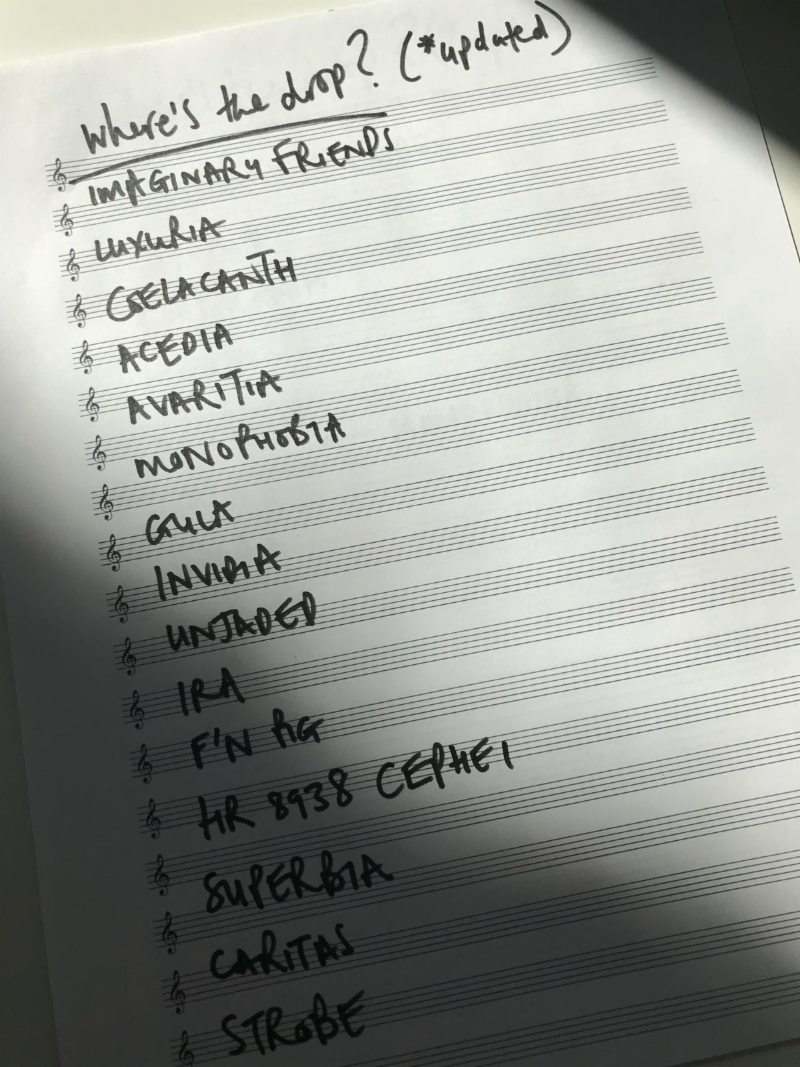 Where's the drop? (*updated)
IMAGINARY FRIENDS
LUXURIA
COELACANTH
ACEDIA
AVARITIA
MONOPHOBIA
GULA
INVIDIA
UNJADED
IRA
F'N PIG
HR 8938 CEPHEI
SUPERBIA
CARITAS
STROBE